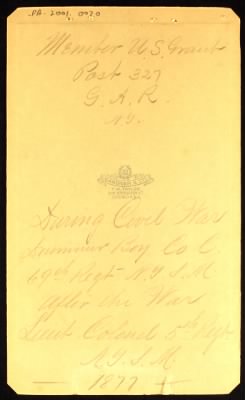 PA-2001.0920
Member U.S. Grant
Post 327
G.A.R.
N.Y.
During Civil War
Drummer Boy Co C.
69th Regt N.Y.S.M
After the War
Lieut Colonel 5th Regt
N.Y.S.M
1877